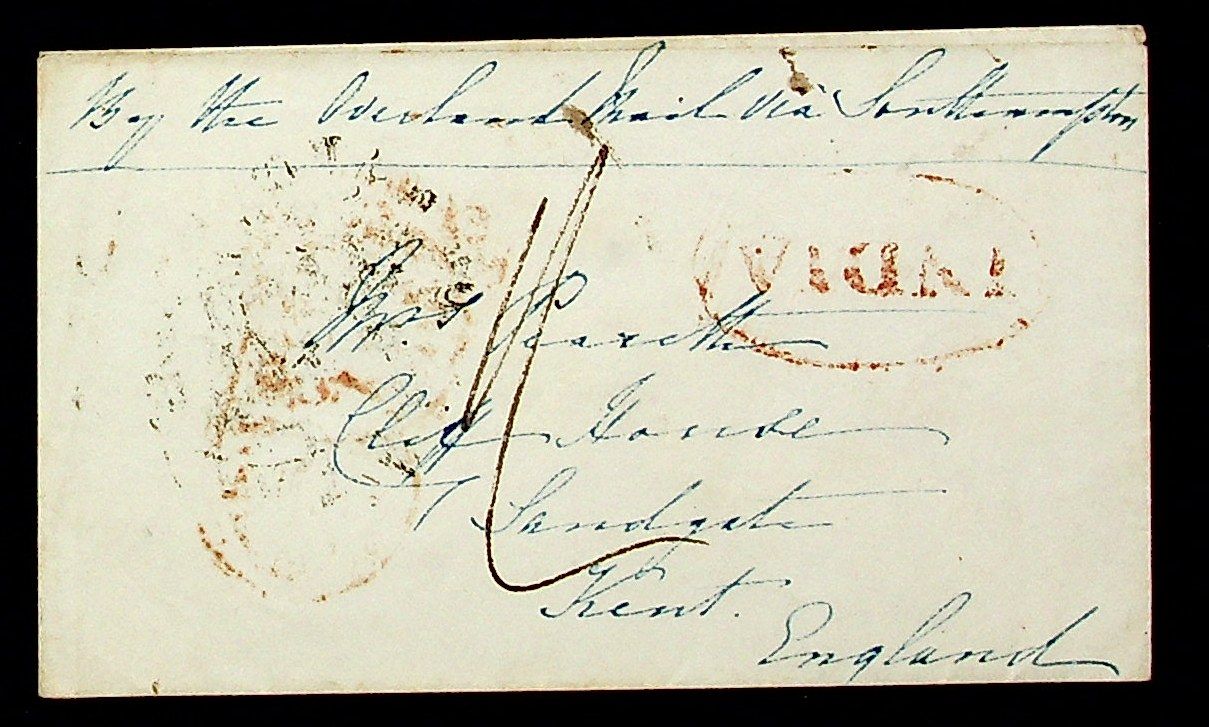 By the Overland Mail via Southampton
INDIA
Mrs
Cliff House
Sandgate
Kent.
England